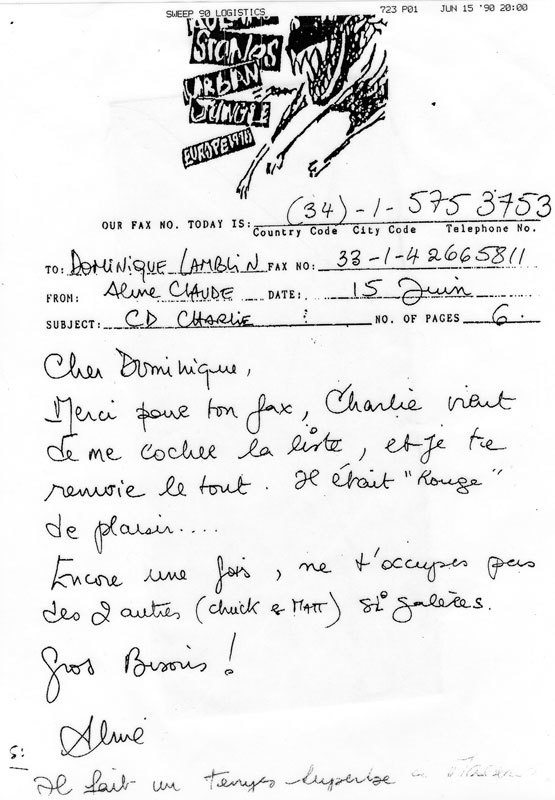 SWEEP 90 LOGISTICS 723 P01 JUN 15 '90 20:00
STONES
URBAN
JUNGLE
EUROPE 1990
OUR FAX NO. TODAY IS: (34)-1-575 3753
Country Code City Code Telephone No.
TO: DOMINIQUE LAMBLIN FAX NO: 33-1-42665811
FROM: Aline CLAUDE DATE: 15 Juin
SUBJECT: CD CHARLIE NO. OF PAGES 6.
Cher Dominique,
Merci pour ton fax, Charlie vient
de me cocher la liste, et je te
renvoie le tout. Il était "Rouge"
de plaisir....
Encore une fois, ne t'occupes pas
des 2 autres (chuck & MATT) si galères.
Gros Bisous!
Aline
S:
Il fait un temps superbe à